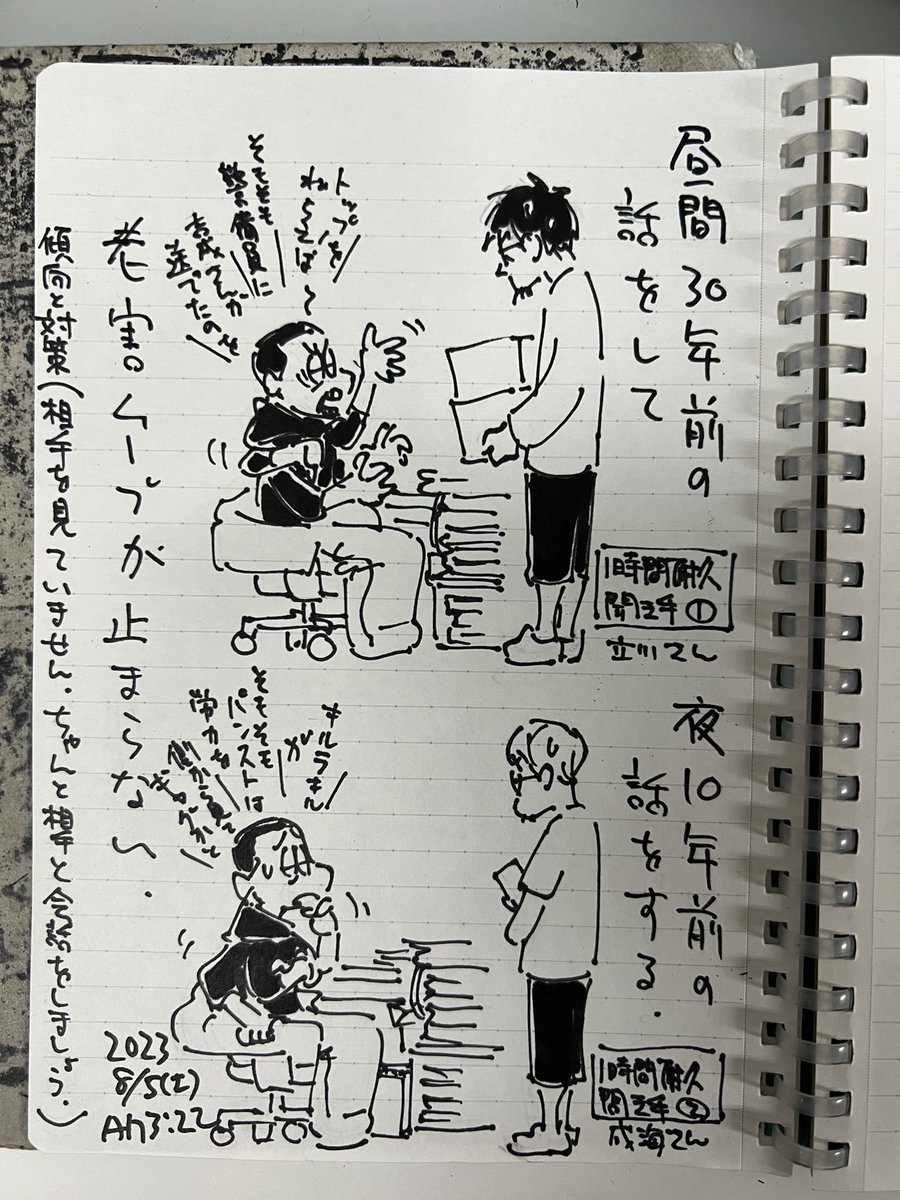 昼間30年前の
話をして
1時間耐久
聞き手①
立川さん
トップを
ねらえば〜
そもそも
警備員に
吉成さんが
夜10年前の
話をする.
1時間耐久
聞き手②
成海さん
キルラキル
が
そもそも
パンストは
労力を
側から見て
ギャグかと
老害ムーブが止まらない.
傾向と対策(相手を見ていません.ちゃんと相手と会話をしましょう.)
2023
8/5(土)
AM3:22